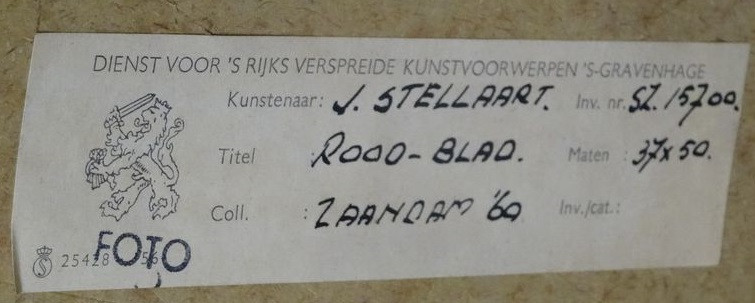 DIENST VOOR 'S RIJKS VERSPREIDE KUNSTVOORWERPEN 'S-GRAVENHAGE
Kunstenaar: J. STELLAART. Inv. nr. SZ.15700.
Titel : ROOD-BLAD. Maten : 37x50.
Coll. : ZAANDAM '60 Inv./cat.:
FOTO
25428